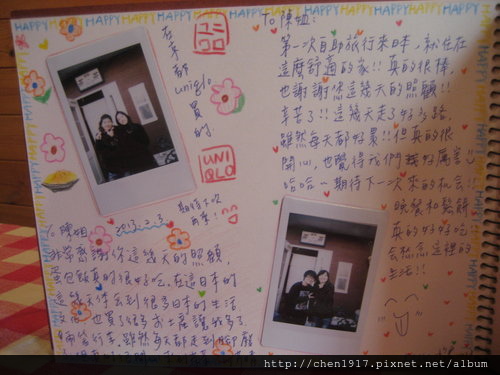 HAPPY HAPPY HAPPY HAPPY HAPPY HAPPY HAPPY HAPPY
在京都
uniqlo
買的
UNI
QLO
To 陳姐:
第一次自助旅行來日本,就住在
這麼舒適的家!!真的很棒,
也謝謝您這幾天的照顧!!
辛苦了!!這幾天走了好多路,
雖然每天都好累!!但真的很
開心,也覺得我們越好厲害
哈哈~期待下一次來的機會!!
晚餐和鬆餅
真的好好吃
會想念這裡的
生活!!
期待下次
再來!!
To 陳姐 2013.2.3
非常感謝你這幾天的照顧,
飯真的很好吃,在這日本的
這幾天体會到很多日本的生活
也買了很多
行李,雖然每天都走到腳
http://chen1917.pixnet.net/album